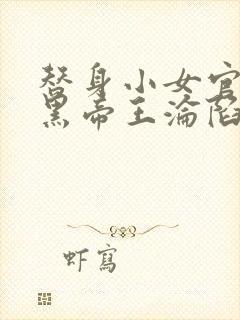 替身小女官
黑帝王淪陷
虾寫